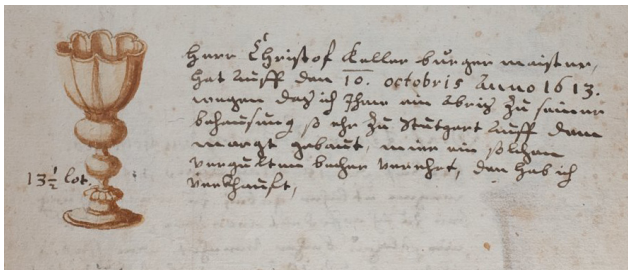 Herr Christof Keller burgermaister,
hat auff den 10. octobris Anno 1613.
wegen das ich Ihme ein Abriß zu seiner
behausung so ehr zu Stutgart auff dem
marckt gebaut, mir ein solchen
vergulten becher verehrt, den hab ich
verkhaufft,
13½ lot.